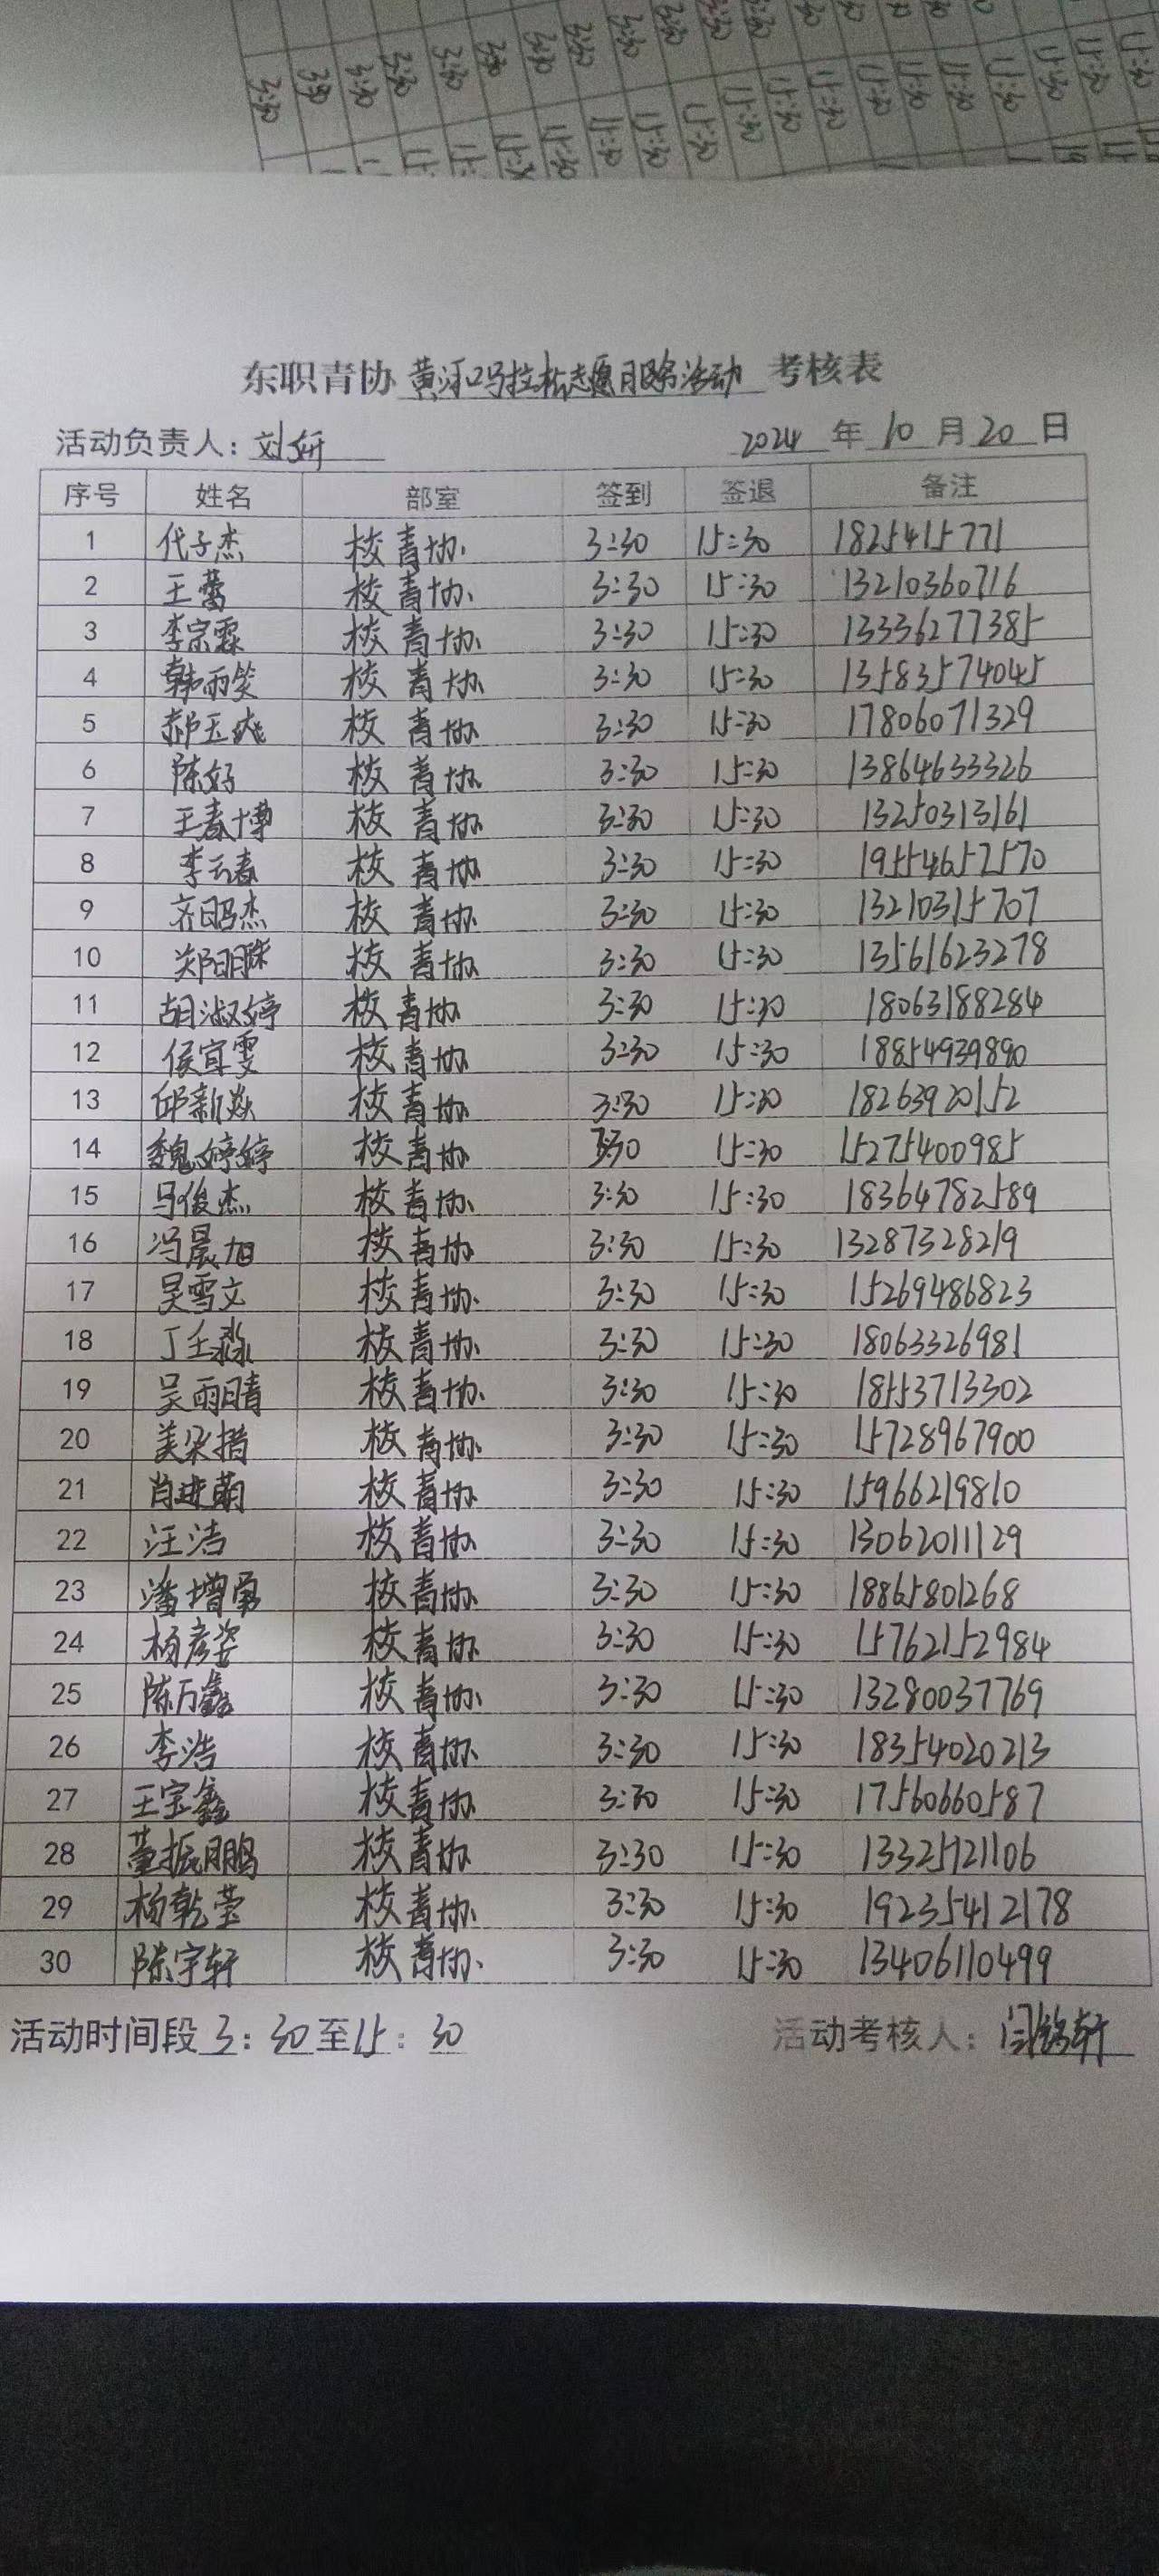 东职青协 黄河口马拉松志愿服务活动 考核表
活动负责人：刘妍 2024 年 10 月 20 日
序号 姓名 部室 签到 签退 备注
1 代子杰 校青协 3:30 15:30 1825415771
2 王蕾 校青协 3:30 15:30 13210360716
3 李宗霖 校青协 3:30 15:30 13336277385
4 韩雨笑 校青协 3:30 15:30 13583574045
5 郝玉 校青协 3:30 15:30 17806071329
6 陈好 校青协 3:30 15:30 13864633326
7 王春博 校青协 3:30 15:30 13250313161
8 李云春 校青协 3:30 15:30 19554657570
9 齐明杰 校青协 3:30 15:30 13210315707
10 郑明 校青协 3:30 15:30 13561623278
11 胡淑婷 校青协 3:30 15:30 18063188284
12 侯宜雯 校青协 3:30 15:30 18854939890
13 邱新焱 校青协 3:30 15:30 18263920152
14 魏婷婷 校青协 3:30 15:30 15275400985
15 马俊杰 校青协 3:30 15:30 18364782589
16 冯晨旭 校青协 3:30 15:30 13287328219
17 吴雪文 校青协 3:30 15:30 15269486823
18 丁壬淼 校青协 3:30 15:30 18063326981
19 吴雨晴 校青协 3:30 15:30 18553713302
20 美朵措 校青协 3:30 15:30 15728967900
21 肖进菊 校青协 3:30 15:30 15966219810
22 汪洁 校青协 3:30 15:30 13062011129
23 潘增勇 校青协 3:30 15:30 18865801268
24 杨彦姿 校青协 3:30 15:30 15762152984
25 陈万鑫 校青协 3:30 15:30 13280037769
26 李浩 校青协 3:30 15:30 18354020213
27 王宝鑫 校青协 3:30 15:30 17560660587
28 董振鹏 校青协 3:30 15:30 13325121106
29 杨乾莹 校青协 3:30 15:30 19235412178
30 陈宇轩 校青协 3:30 15:30 13406110499
活动时间段 3：30至15：30 活动考核人：闫铭轩